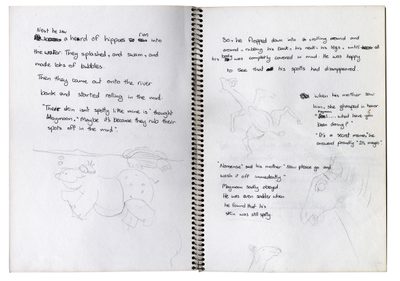 Next he saw
a heard of hippues run into
the water. They splashed, and swam, and
made lots of bubbles.
Then they came out onto the river
bank and started rolling in the mud.
"There skin isn't spotty like mine is" thought
"Maybe it's because they rub their
spots off in the mud".
So- he flopped down into it rolling around and
around, rubbing his back, his neck, his legs, until
his was completely covered in mud. He was happy
to see that his spots had disappeared.
when his mother saw
him, she gasped in horror
what have you
been doing?"
"It's a secret mama," he
answered proudly "It's magic"
"Nonsense" said his mother "Now please go and
wash it off immediately."
sadly obeyed
He was even sadder when
he found that his
skin was still spotty.